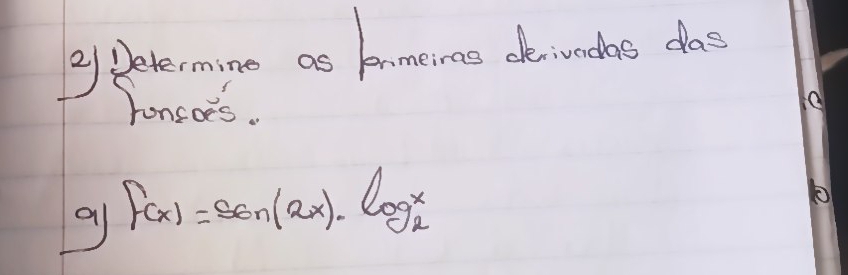 2) Determine as primeiras derivadas das
funções.
a) f(x) = sen(2x). log₂ˣ